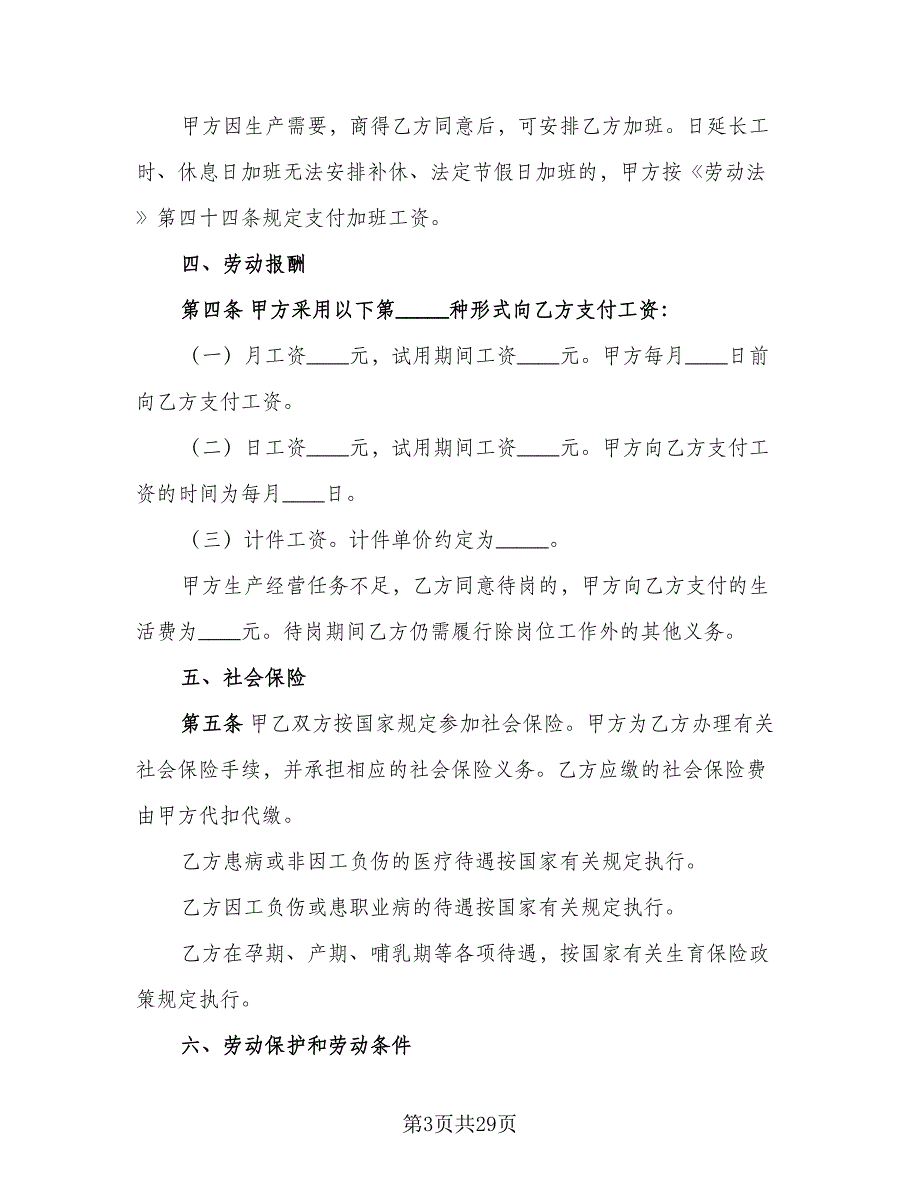 甲方因生产需要，商得乙方同意后，可安排乙方加班。日延长工
时、休息日加班无法安排补休、法定节假日加班的，甲方按《劳动法
》第四十四条规定支付加班工资。
四、劳动报酬
第四条 甲方采用以下第_____种形式向乙方支付工资：
（一）月工资____元，试用期间工资____元。甲方每月____日前
向乙方支付工资。
（二）日工资____元，试用期间工资____元。甲方向乙方支付工
资的时间为每月____日。
（三）计件工资。计件单价约定为_____。
甲方生产经营任务不足，乙方同意待岗的，甲方向乙方支付的生
活费为____元。待岗期间乙方仍需履行除岗位工作外的其他义务。
五、社会保险
第五条 甲乙双方按国家规定参加社会保险。甲方为乙方办理有关
社会保险手续，并承担相应的社会保险义务。乙方应缴的社会保险费
由甲方代扣代缴。
乙方患病或非因工负伤的医疗待遇按国家有关规定执行。
乙方因工负伤或患职业病的待遇按国家有关规定执行。
乙方在孕期、产期、哺乳期等各项待遇，按国家有关生育保险政
策规定执行。
六、劳动保护和劳动条件
第3页共29页